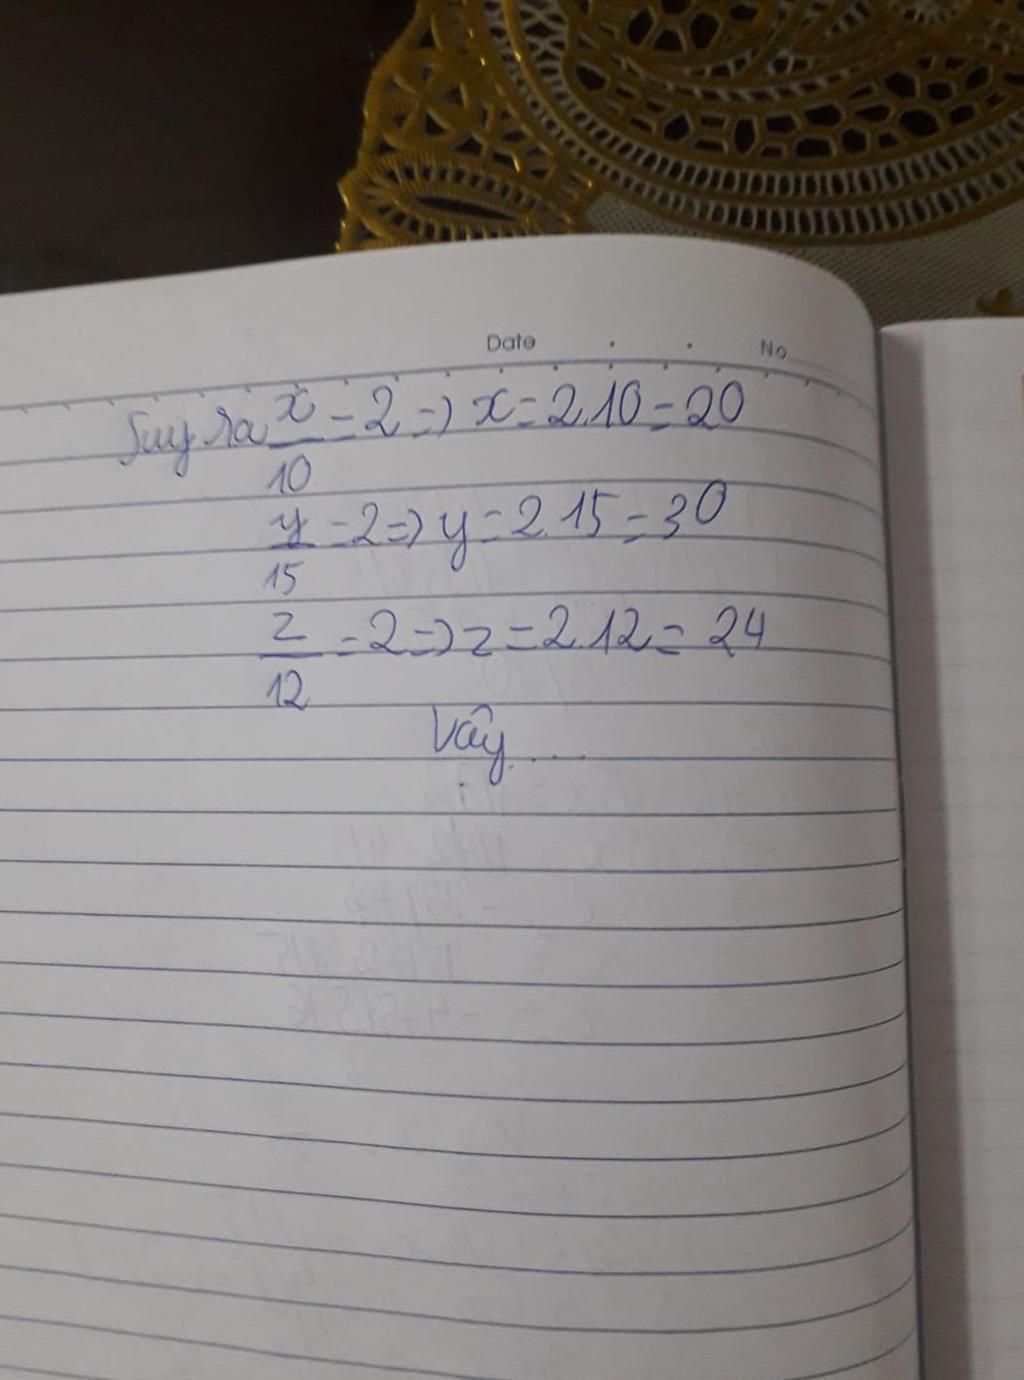 Date . . No
Suy ra x/10 = 2 => x = 2.10 = 20
y/15 = 2 => y = 2.15 = 30
z/12 = 2 => z = 2.12 = 24
Vậy ....